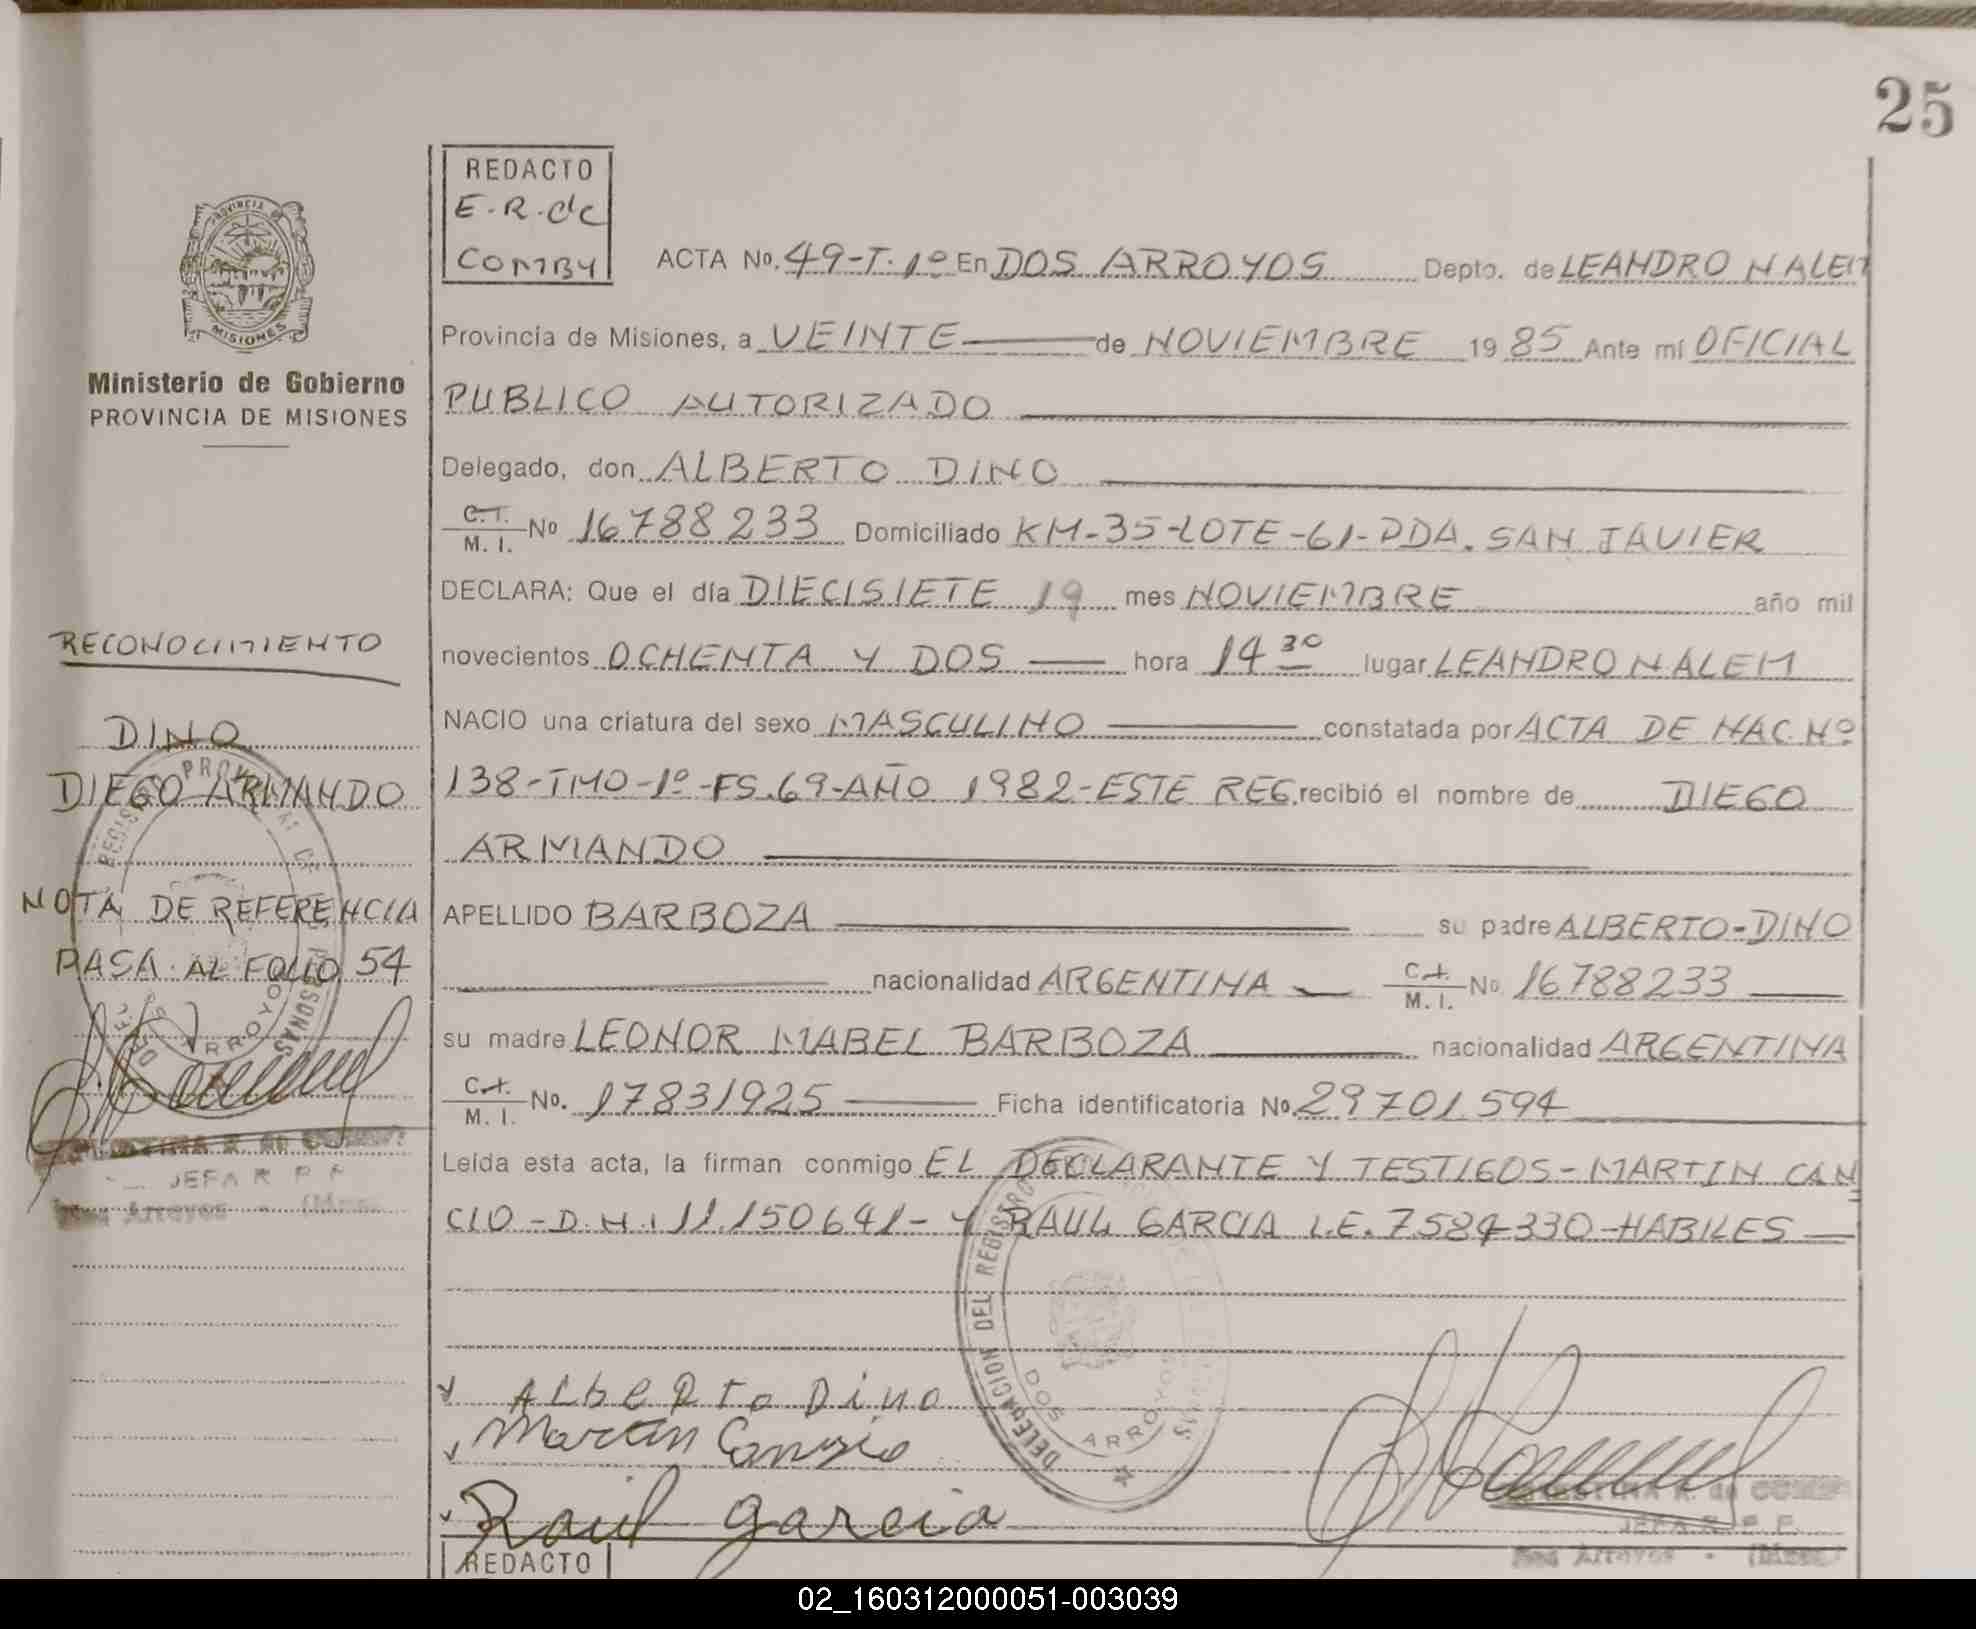 25
REDACTO
E.R.de
COMBY
ACTA No. 49-T.1º En DOS ARROYOS Depto. de LEANDRO N ALEM
Provincia de Misiones, a VEINTE de NOVIEMBRE 19 85 Ante mí OFICIAL
PUBLICO AUTORIZADO
Delegado, don ALBERTO DINO
C.I. M. I. No 16788233 Domiciliado KM-35-LOTE-61-PDA. SAN JAVIER
DECLARA: Que el día DIECISIETE 19 mes NOVIEMBRE año mil
novecientos OCHENTA Y DOS hora 14 30 lugar LEANDRO N ALEM
NACIO una criatura del sexo MASCULINO constatada por ACTA DE NAC. Nº
138-TMO-1º-FS.69-AÑO 1982-ESTE REG. recibió el nombre de DIEGO
ARMANDO
APELLIDO BARBOZA su padre ALBERTO-DINO
nacionalidad ARGENTINA C.I. M. I. No. 16788233
su madre LEONOR MABEL BARBOZA nacionalidad ARGENTINA
C.I. M. I. No. 17831925 Ficha identificatoria No. 29701594
Leída esta acta, la firman conmigo EL DECLARANTE Y TESTIGOS-MARTIN CAN
CIO-D.N.I 11.150641- Y RAUL GARCIA L.E. 7584330-HABILES
Alberto Dino
Martin Cancio
Raúl Garcia
DELEGACION DEL REGISTRO
DOS ARROYOS
JEFA R. P. P.
Dos Arroyos - (Mnes.)
REDACTO
PROVINCIA DE
MISIONES
Ministerio de Gobierno
PROVINCIA DE MISIONES
RECONOCIMIENTO
DINO
DIEGO ARMANDO
NOTA DE REFERENCIA
PASA AL FOLIO 54
JEFA R P P
Dos Arroyos - (Mnes.
02_160312000051-003039